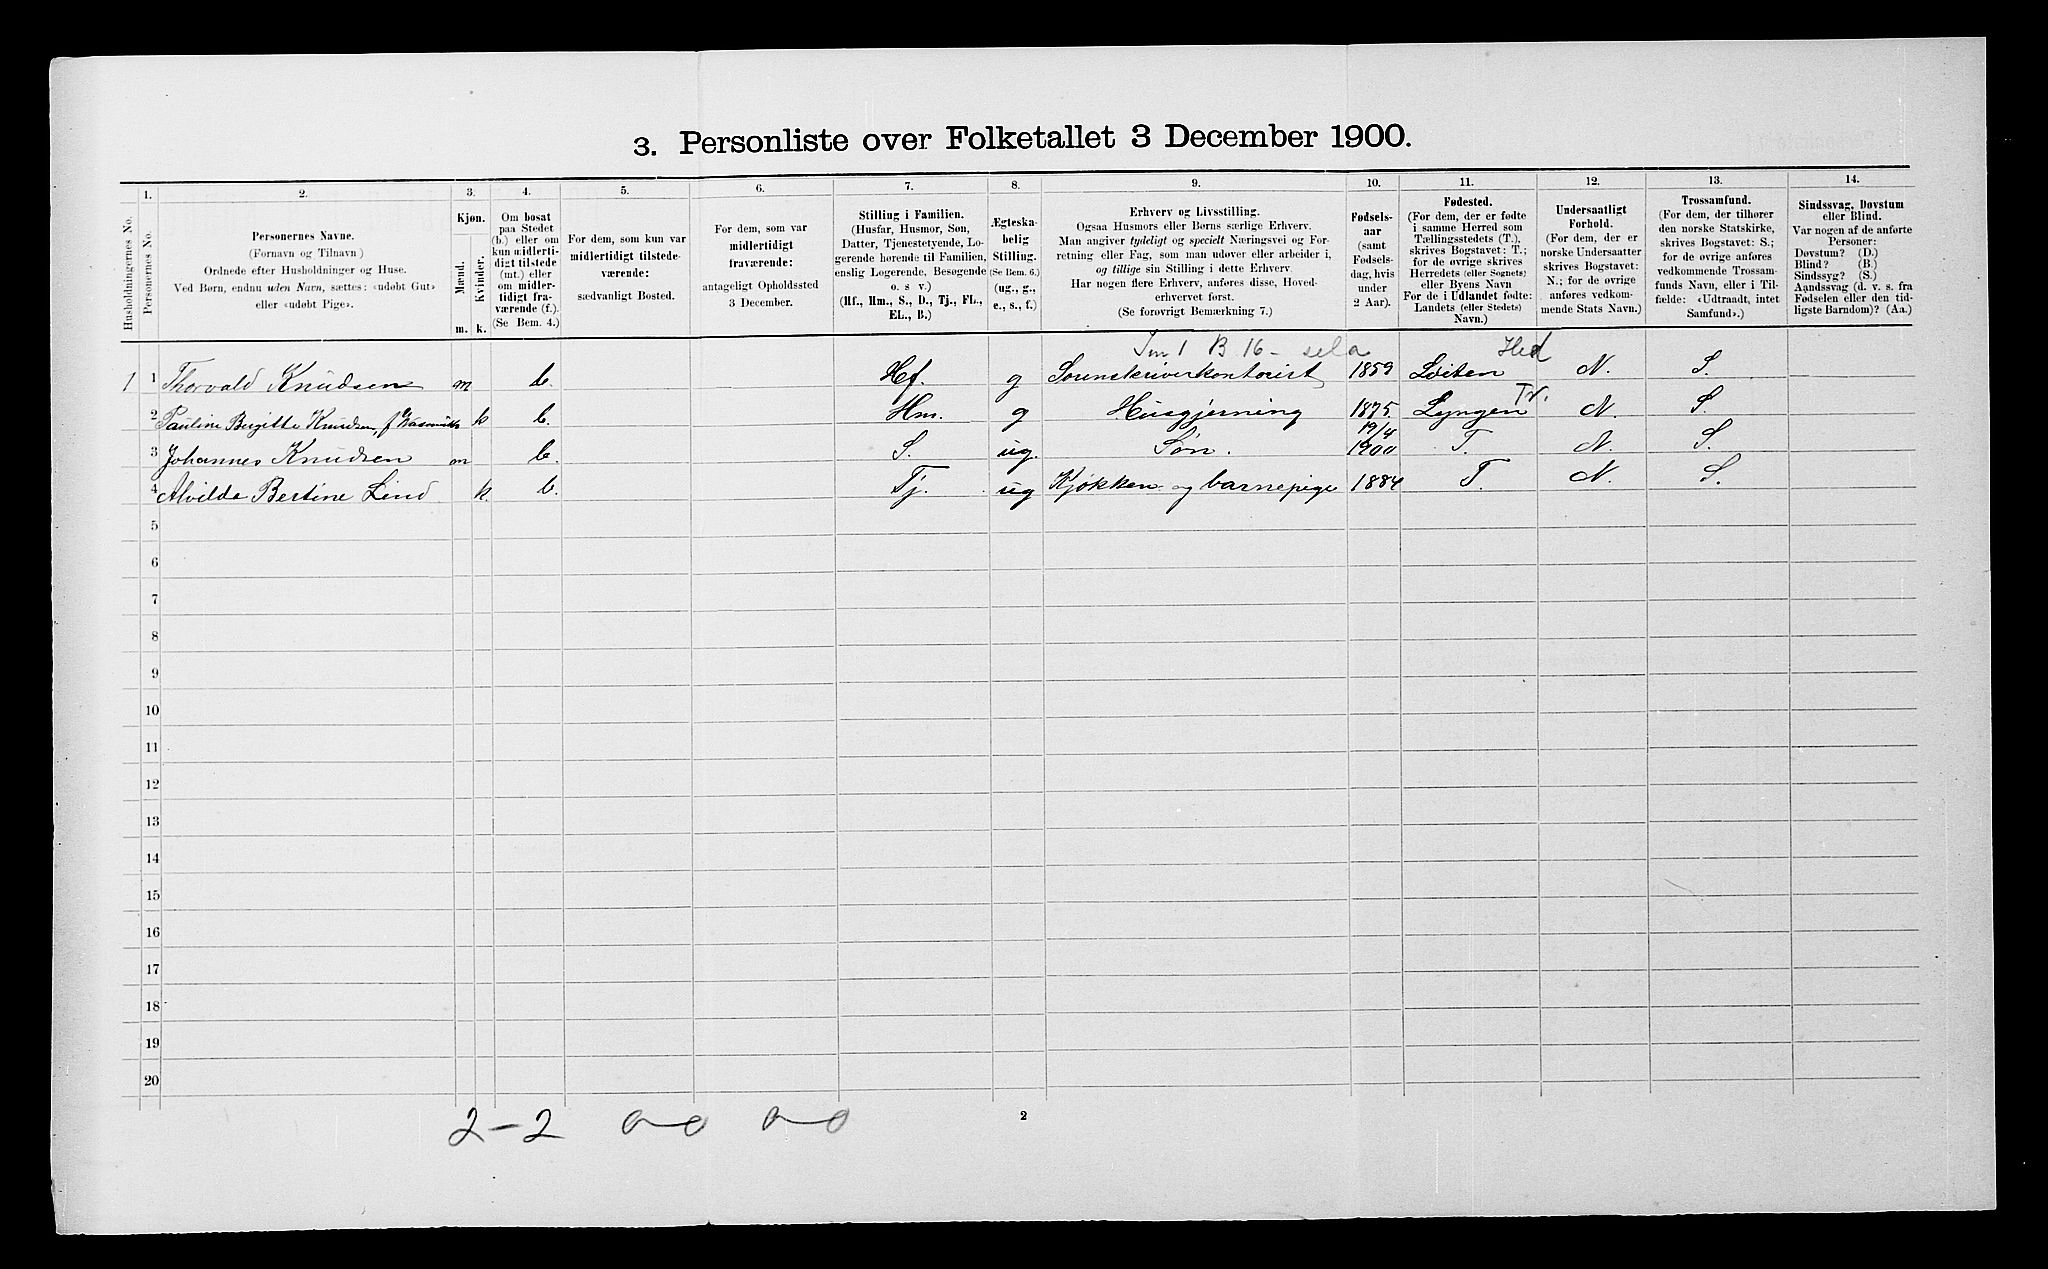 3. Personliste over Folketallet 3 December 1900.
1. 2. 3. 4. 5. 6. 7. 8. 9. 10. 11. 12. 13. 14.
Husholdningernes No.
Personernes No.
Personernes Navne.
(Fornavn og Tilnavn)
Ordnede efter Husholdninger og Huse.
Ved Børn, endnu uden Navn, sættes: «udøbt Gut»
eller «udøbt Pige».
Kjøn.
Mænd.
Kvinder.
m. k.
Om bosat
paa Stedet
(b.) eller om
kun midlerti-
digt tilstede
(mt.) eller
om midler-
tidigt fra-
værende (f.).
(Se Bem. 4.)
For dem, som kun var
midlertidigt tilstede-
værende:
sædvanligt Bosted.
For dem, som var
midlertidigt
fraværende:
antageligt Opholdssted
3 December.
Stilling i Familien.
(Husfar, Husmor, Søn,
Datter, Tjenestetyende, Lo-
gerende hørende til Familien,
enslig Logerende, Besøgende
o. s v.)
(Hf., Hm., S., D., Tj., FL.,
EL., B.)
Ægteska-
belig
Stilling.
(Se Bem. 6.)
(ug., g.,
e., s., f.)
Erhverv og Livsstilling.
Ogsaa Husmors eller Børns særlige Erhverv.
Man angiver tydeligt og specielt Næringsvei og For-
retning eller Fag, som man udøver eller arbeider i,
og tillige sin Stilling i dette Erhverv.
Har nogen flere Erhverv, anføres disse, Hoved-
erhvervet først.
(Se forøvrigt Bemærkning 7.)
Fødsels-
aar
(samt
Fødsels-
dag, hvis
under
2 Aar).
Fødested.
(For dem, der er fødte
i samme Herred som
Tællingsstedets (T.),
skrives Bogstavet: T.;
for de øvrige skrives
Herredets (eller Sognets)
eller Byens Navn
For de i Udlandet fødte:
Landets (eller Stedets)
Navn.)
Undersaatligt
Forhold.
(For dem, der er
norske Undersaatter
skrives Bogstavet:
N.; for de øvrige
anføres vedkom-
mende Stats Navn.)
Trossamfund.
(For dem, der tilhører
den norske Statskirke,
skrives Bogstavet: S.;
for de øvrige anføres
vedkommende Trossam-
funds Navn, eller i Til-
fælde: «Udtraadt, intet
Samfund».)
Sindssvag, Døvstum
eller Blind.
Var nogen af de anførte
Personer:
Døvstum? (D.)
Blind? (B.)
Sindssyg? (S.)
Aandssvag (d. v. s. fra
Fødselen eller den tid-
ligste Barndom)? (Aa.)
B 16 Hed
1 1 Thorvald Knudsen m b. Hf. g Sorenskriverkontorist 1859 Løiten N. S.
Tr.
2 Pauline Birgitte Knudsen, f k b. Hm. g Husgjerning 1875 Lyngen N. S.
19/4
3 Johannes Knudsen m b. S. ug. Søn. 1900 T. N. S.
4 Alvilde Bertine Lind k. b. Tj. ug Kjøkken og barnepige 1884 T. N. S.
5
6
7
8
9
10
11
12
13
14
15
16
17
18
19
20
2-2 0-0 0-0
2